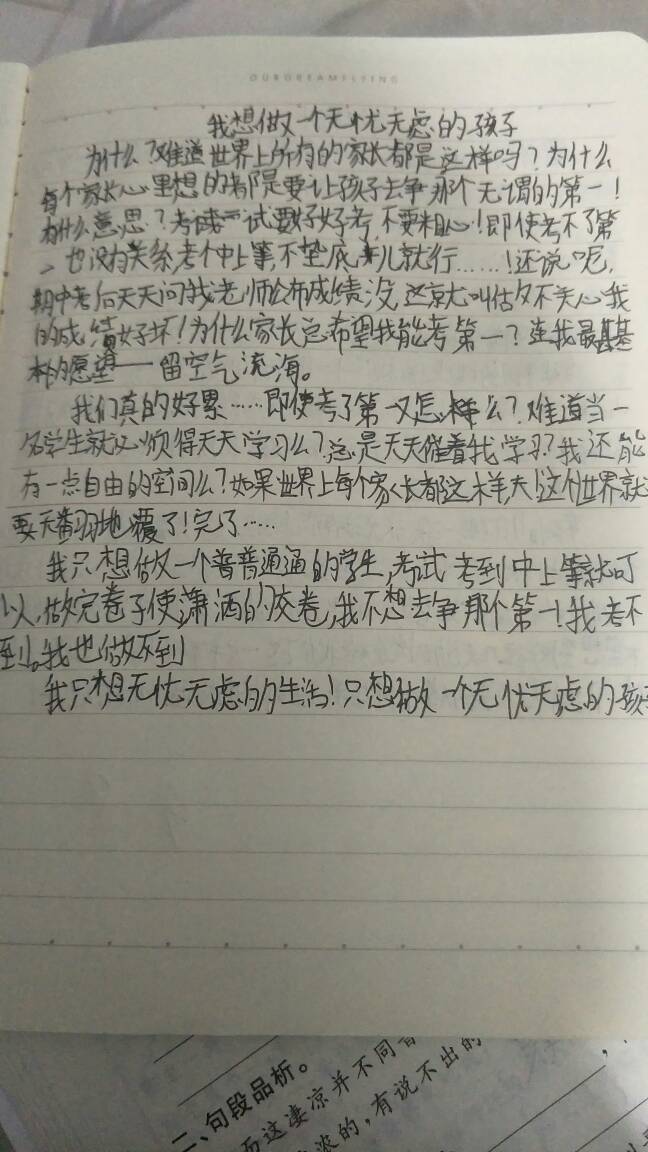 OURDREAMFLYING
我想做一个无忧无虑的孩子
为什么?难道世界上所有的家长都是这样吗?为什么
每个家长心里想的都是要让孩子去争那个无谓的第一!
有什么意思?考试要好好考,不要粗心!即使考不了第
一也没有关系,考个中上等,不垫底儿就行……!还说呢,
期中考后天天问我老师公布成绩没,这就叫做不关心我
的成绩好坏!为什么家长总希望我能考第一?连我最基
本的愿望——留空气流海。
我们真的好累……即使考了第一又怎样么?难道当一
名学生就必须得天天学习么?总是天天催着我学习?我还能
有一点自由的空间么?如果世界上每个家长都这样,天!这个世界就
要天翻地覆了!完了……
我只想做一个普普通通的学生,考试考到中上等就可
以,做完卷子便潇洒的交卷,我不想去争那个第一!我考不
到。我也做不到
我只想无忧无虑的生活!只想做一个无忧无虑的孩
二、句段品析。
而这凄凉并不同
浓的,有说不出的